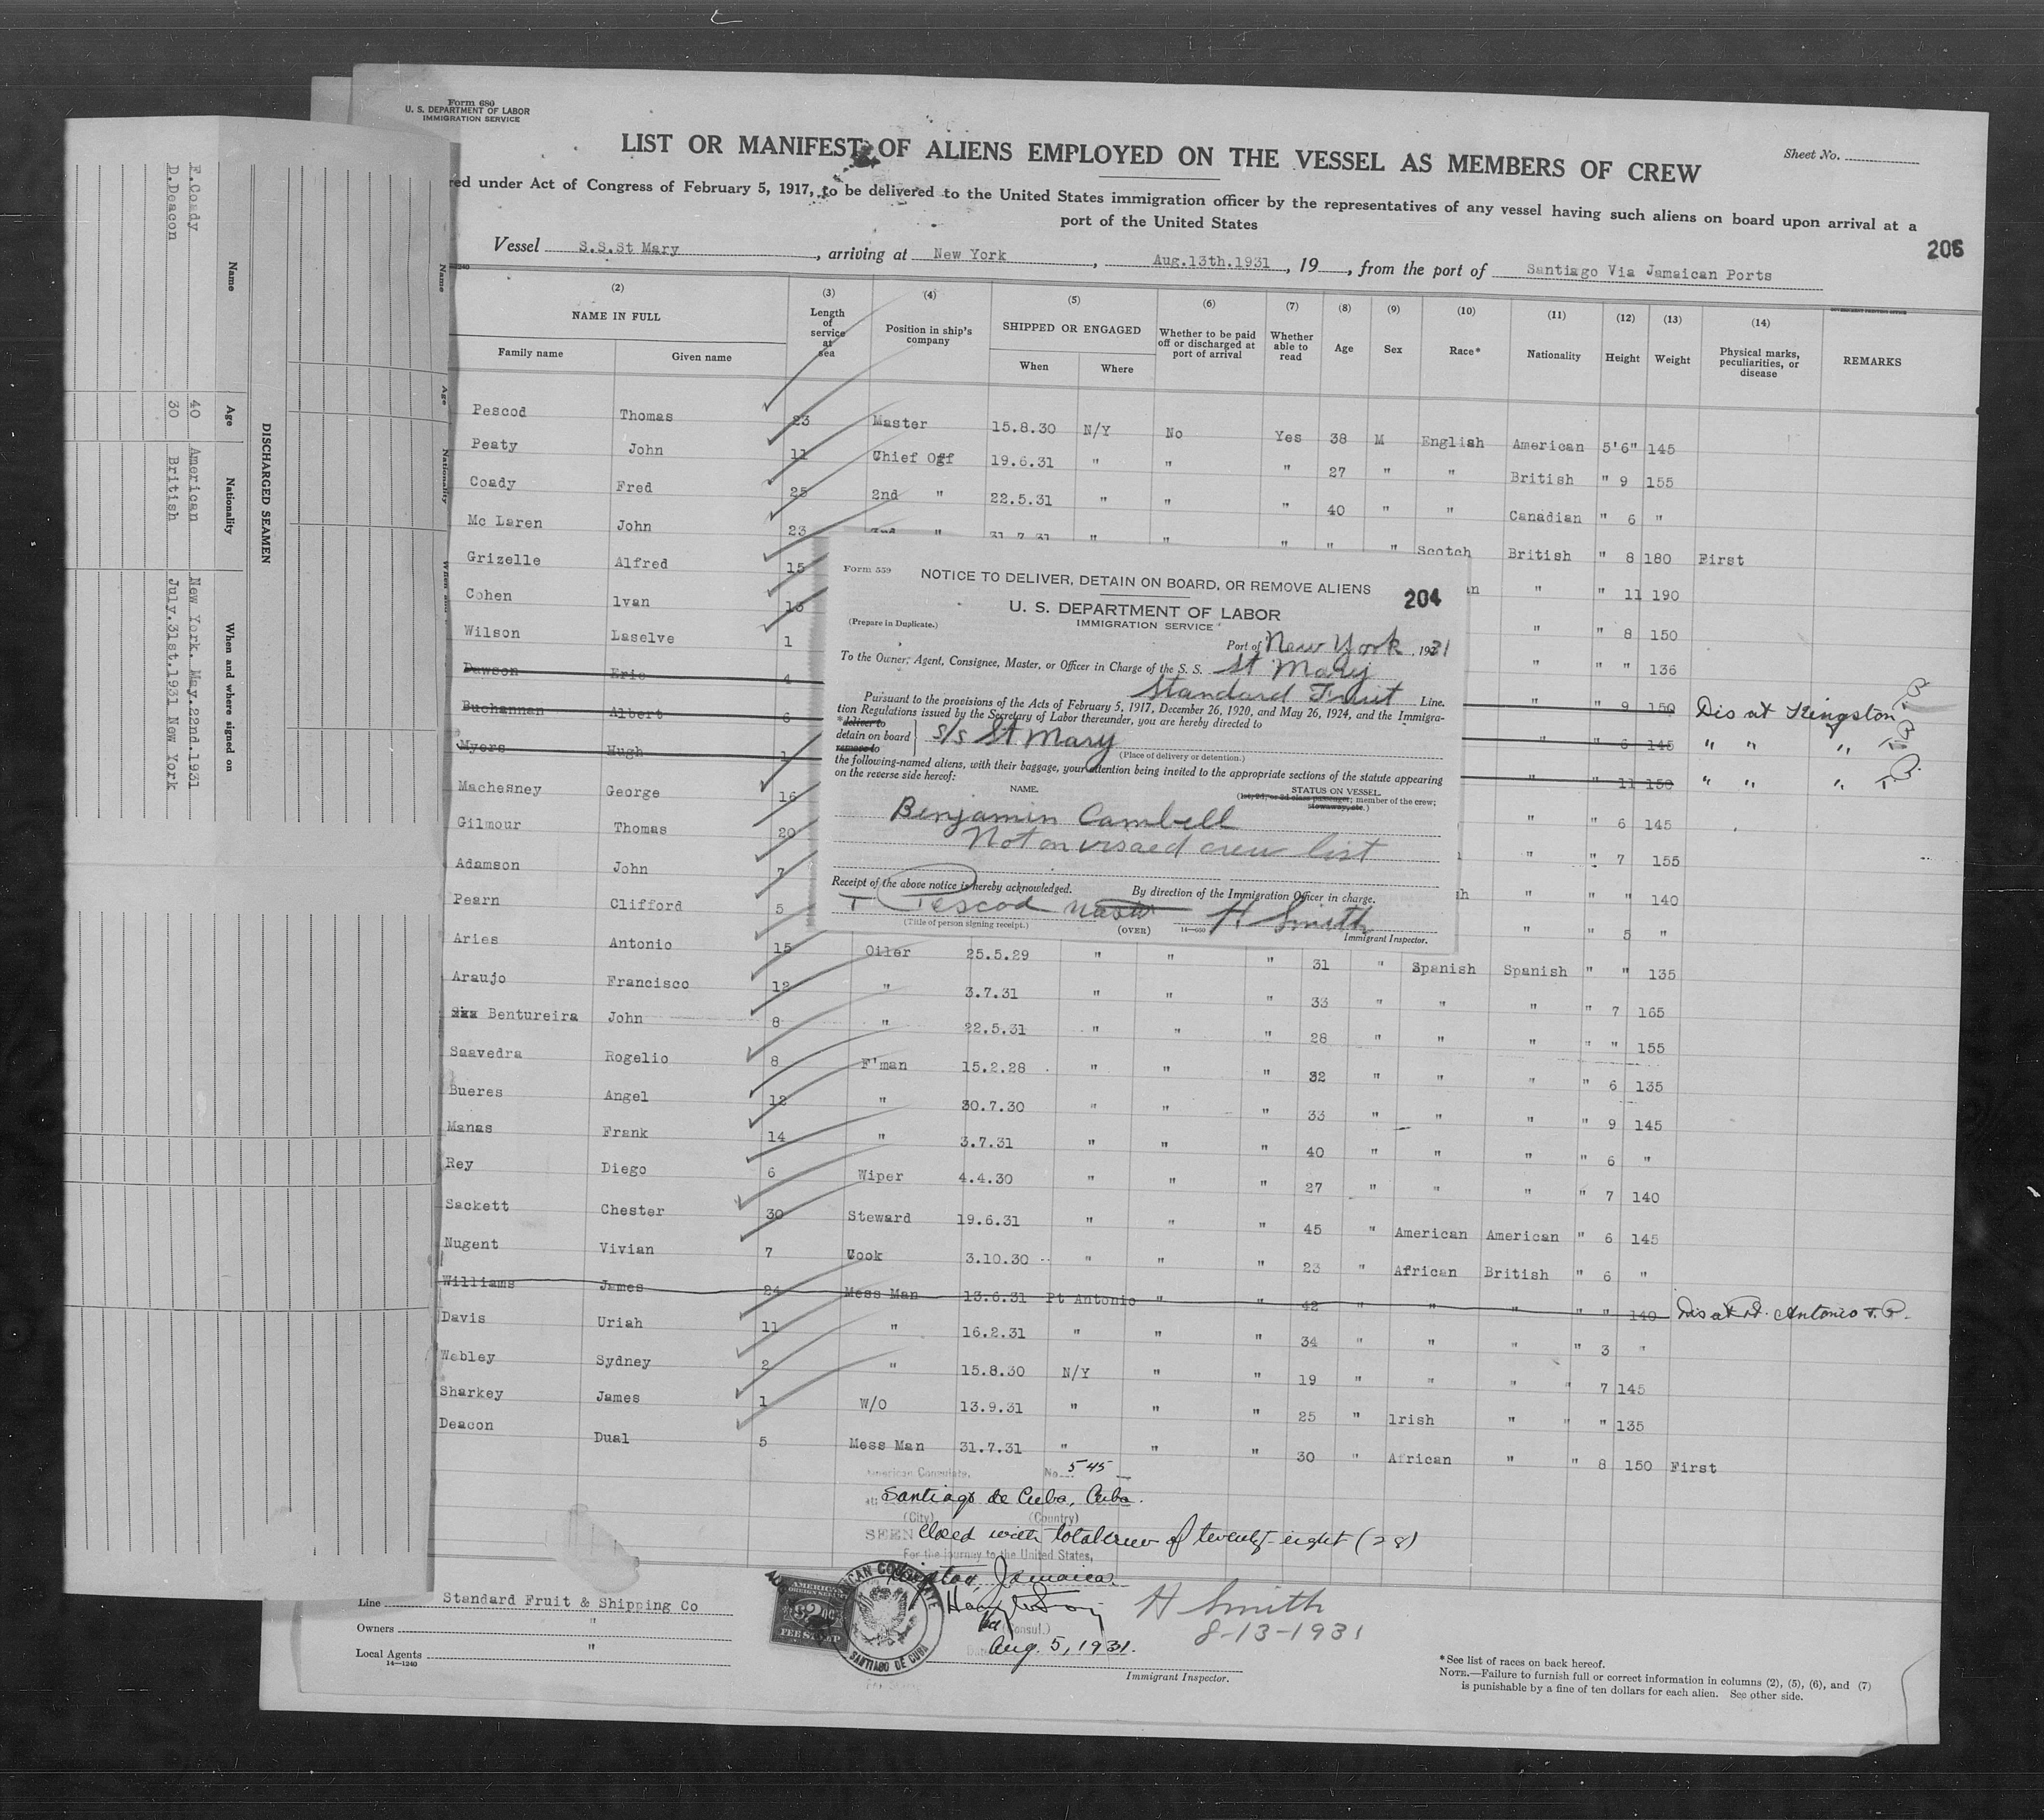 Form 680
U. S. DEPARTMENT OF LABOR
IMMIGRATION SERVICE
LIST OR MANIFEST OF ALIENS EMPLOYED ON THE VESSEL AS MEMBERS OF CREW
Sheet No.
red under Act of Congress of February 5, 1917, to be delivered to the United States immigration officer by the representatives of any vessel having such aliens on board upon arrival at a
port of the United States
206
Vessel S.S.St Mary, arriving at New York, Aug.13th.1931, 19, from the port of Santiago Via Jamaican Ports
(2) (3) (4) (5) (6) (7) (8) (9) (10) (11) (12) (13) (14)
NAME IN FULL Length of service at sea Position in ship's company SHIPPED OR ENGAGED Whether to be paid off or discharged at port of arrival Whether able to read Age Sex Race* Nationality Height Weight Physical marks, peculiarities, or disease REMARKS
Family name Given name When Where
Pescod Thomas 23 Master 15.8.30 N/Y No Yes 38 M English American 5'6" 145
Peaty John 11 Chief Off 19.6.31 " " " 27 " " British " 9 155
Coady Fred 25 2nd " 22.5.31 " " " 40 " " Canadian " 6 "
Mc Laren John 23 " 31.7.31 " " " " " Scotch British " 8 180 First
Grizelle Alfred 15 " " 11 190
Cohen lvan 13 " " 8 150
Wilson Laselve 1 " " " 136
Dawson Eric 4 " " 9 150 Dis at Kingston
Buchannan Albert 6 " " 6 145 " " "
Myers Hugh 1 " " 11 150 " " "
Machesney George 16 " " 6 145
Gilmour Thomas 20 " " 7 155
Adamson John 7 " " " 140
Pearn Clifford 5 " " 5 "
Aries Antonio 15 Oiler 25.5.29 " " " 31 " Spanish Spanish " " 135
Araujo Francisco 12 " 3.7.31 " " " 33 " " " " 7 165
Bentureira John 8 " 22.5.31 " " " 28 " " " " " 155
Saavedra Rogelio 8 F'man 15.2.28 " " " 32 " " " " 6 135
Bueres Angel 12 " 30.7.30 " " " 33 " " " " 9 145
Manas Frank 14 " 3.7.31 " " " 40 " " " " 6 "
Rey Diego 6 Wiper 4.4.30 " " " 27 " " " " 7 140
Sackett Chester 30 Steward 19.6.31 " " " 45 " American American " 6 145
Nugent Vivian 7 Cook 3.10.30 " " " 23 " African British " 6 "
Williams James 24 Mess Man 13.6.31 Pt Antonio " " 42 " " " " " 140 Dis at Pt. Antonio
Davis Uriah 11 " 16.2.31 " " " 34 " " " " 3 "
Webley Sydney 2 " 15.8.30 N/Y " " 19 " " " " 7 145
Sharkey James 1 W/O 13.9.31 " " " 25 " lrish " " " 135
Deacon Dual 5 Mess Man 31.7.31 " " " 30 " African " " 8 150 First
Form 559
NOTICE TO DELIVER, DETAIN ON BOARD, OR REMOVE ALIENS
204
U. S. DEPARTMENT OF LABOR
IMMIGRATION SERVICE
(Prepare in Duplicate.)
Port of New York, 1931
To the Owner, Agent, Consignee, Master, or Officer in Charge of the S. S. St Mary
Standard Fruit Line.
Pursuant to the provisions of the Acts of February 5, 1917, December 26, 1920, and May 26, 1924, and the Immigra-
tion Regulations issued by the Secretary of Labor thereunder, you are hereby directed to
*deliver to
detain on board S/S St. Mary
remove to
(Place of delivery or detention.)
the following-named aliens, with their baggage, your attention being invited to the appropriate sections of the statute appearing
on the reverse side hereof:
NAME. STATUS ON VESSEL.
(1st, 2d, or 3d class passenger; member of the crew; stowaway, etc.)
Benjamin Cambell
Not on visaed crew list
Receipt of the above notice is hereby acknowledged. By direction of the Immigration Officer in charge.
T Pescod Master H. Smith
(Title of person signing receipt.) (OVER) Immigrant Inspector.
American Consulate, No. 545
at Santiago de Cuba, Cuba.
(City) (Country)
SEEN Closed with total crew of twenty-eight (28)
For the journey to the United States,
Kingston, Jamaica
(Consul.)
Aug. 5, 1931.
AMERICAN CONSULATE
SANTIAGO DE CUBA
AMERICAN
FOREIGN SERVICE
$2
FEE STAMP
H Smith
8-13-1931
Immigrant Inspector.
Line Standard Fruit & Shipping Co
Owners "
Local Agents "
14—1240
*See list of races on back hereof.
NOTE.—Failure to furnish full or correct information in columns (2), (5), (6), and (7)
is punishable by a fine of ten dollars for each alien. See other side.
DISCHARGED SEAMEN
Name Age Nationality When and where signed on
F.Coady 40 American New York. May.22nd.1931
D.Deacon 30 British July.31st.1931 New York
Name Age Nationality